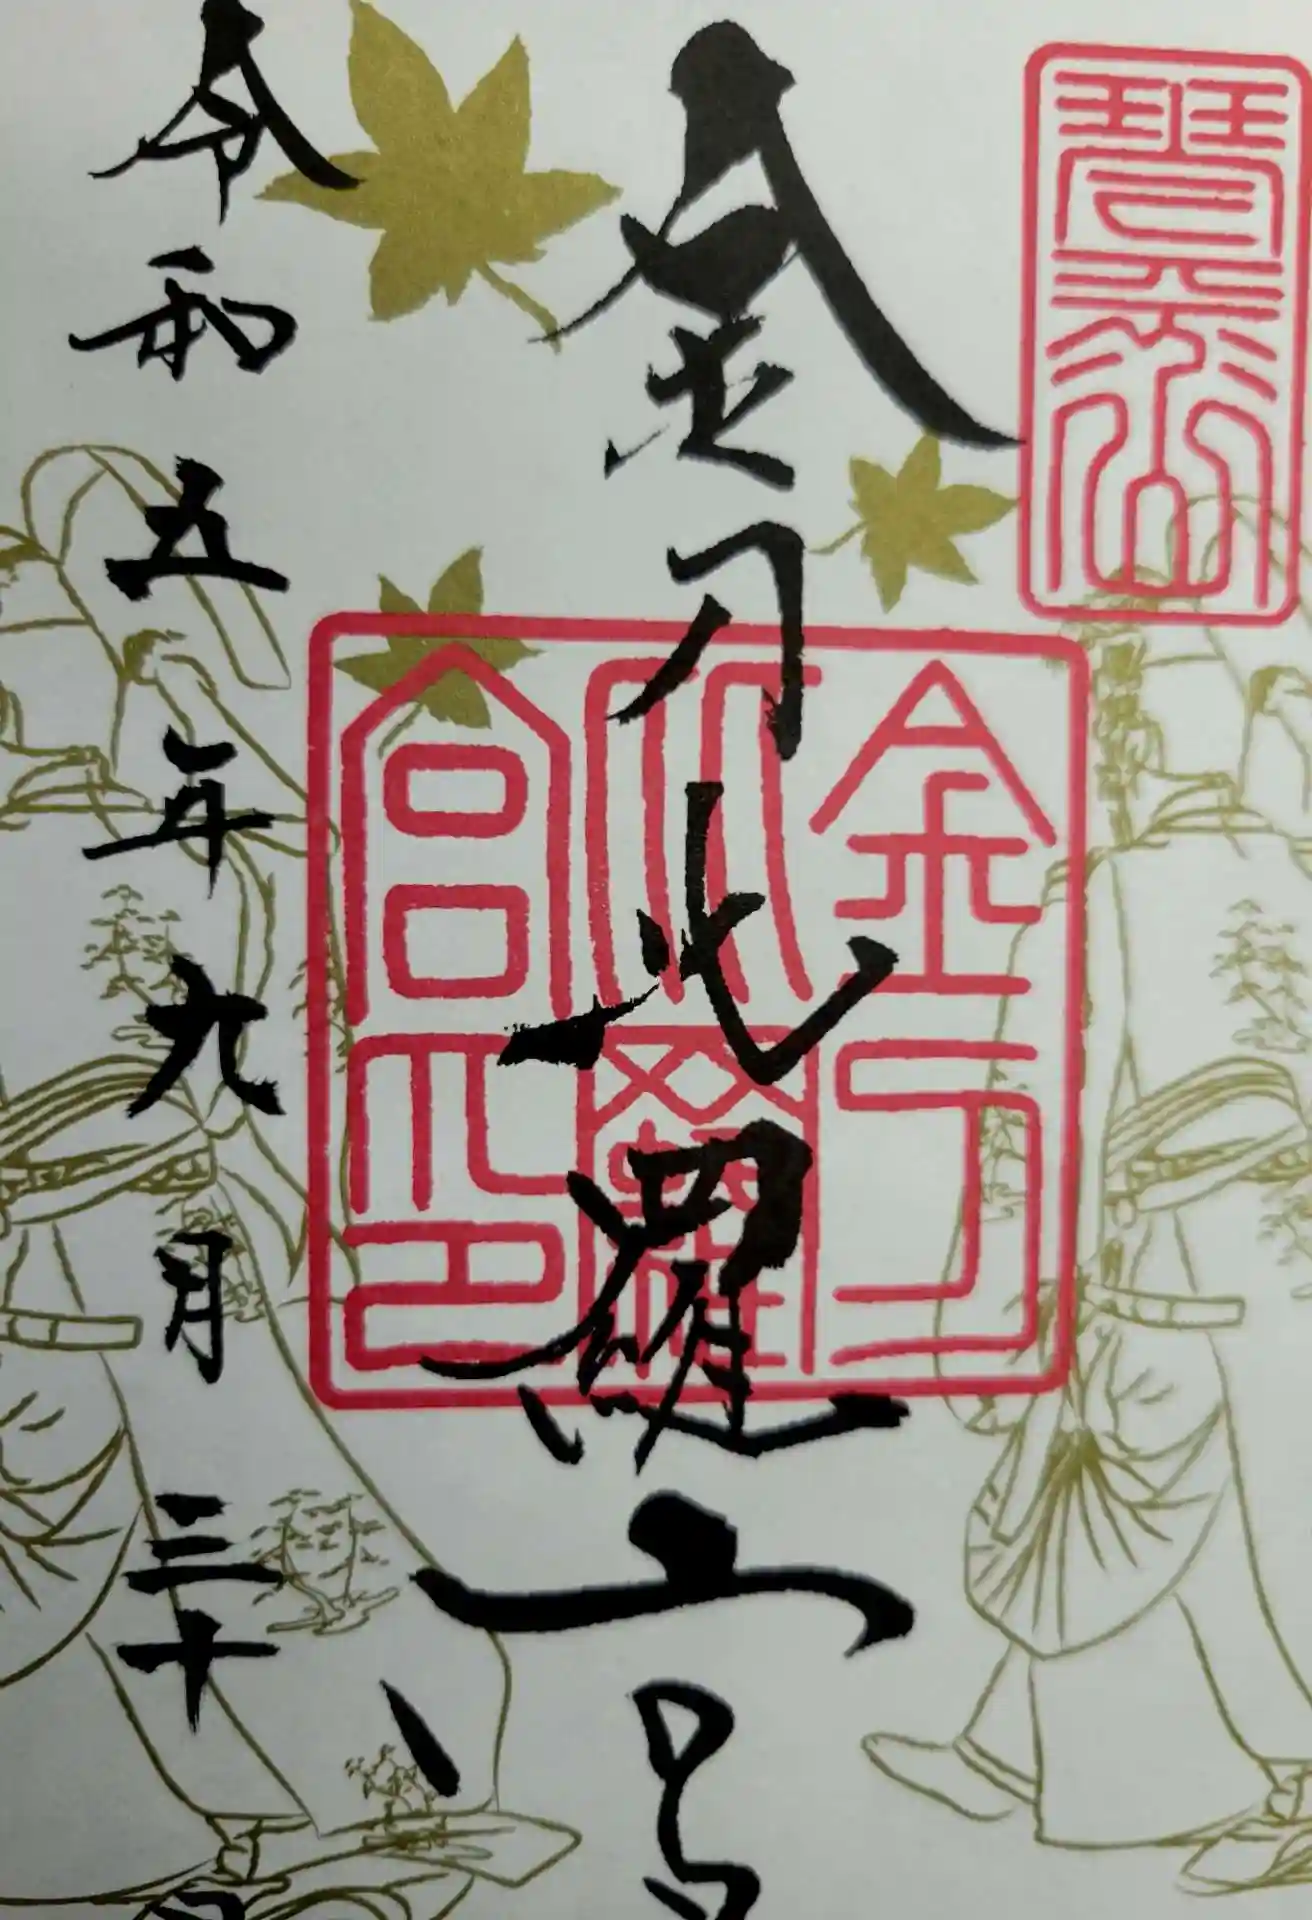 琴平山
金刀比羅宮
金刀比羅宮印
令和五年九月三十日